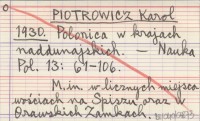 PIOTROWICZ Karol
1930. Polonica w krajach
naddunajskich. — Nauka
Pol. 13: 61-106.
M.in. w licznych miejsco
wościach na Spiszu oraz w
Orawskich Zamkach.